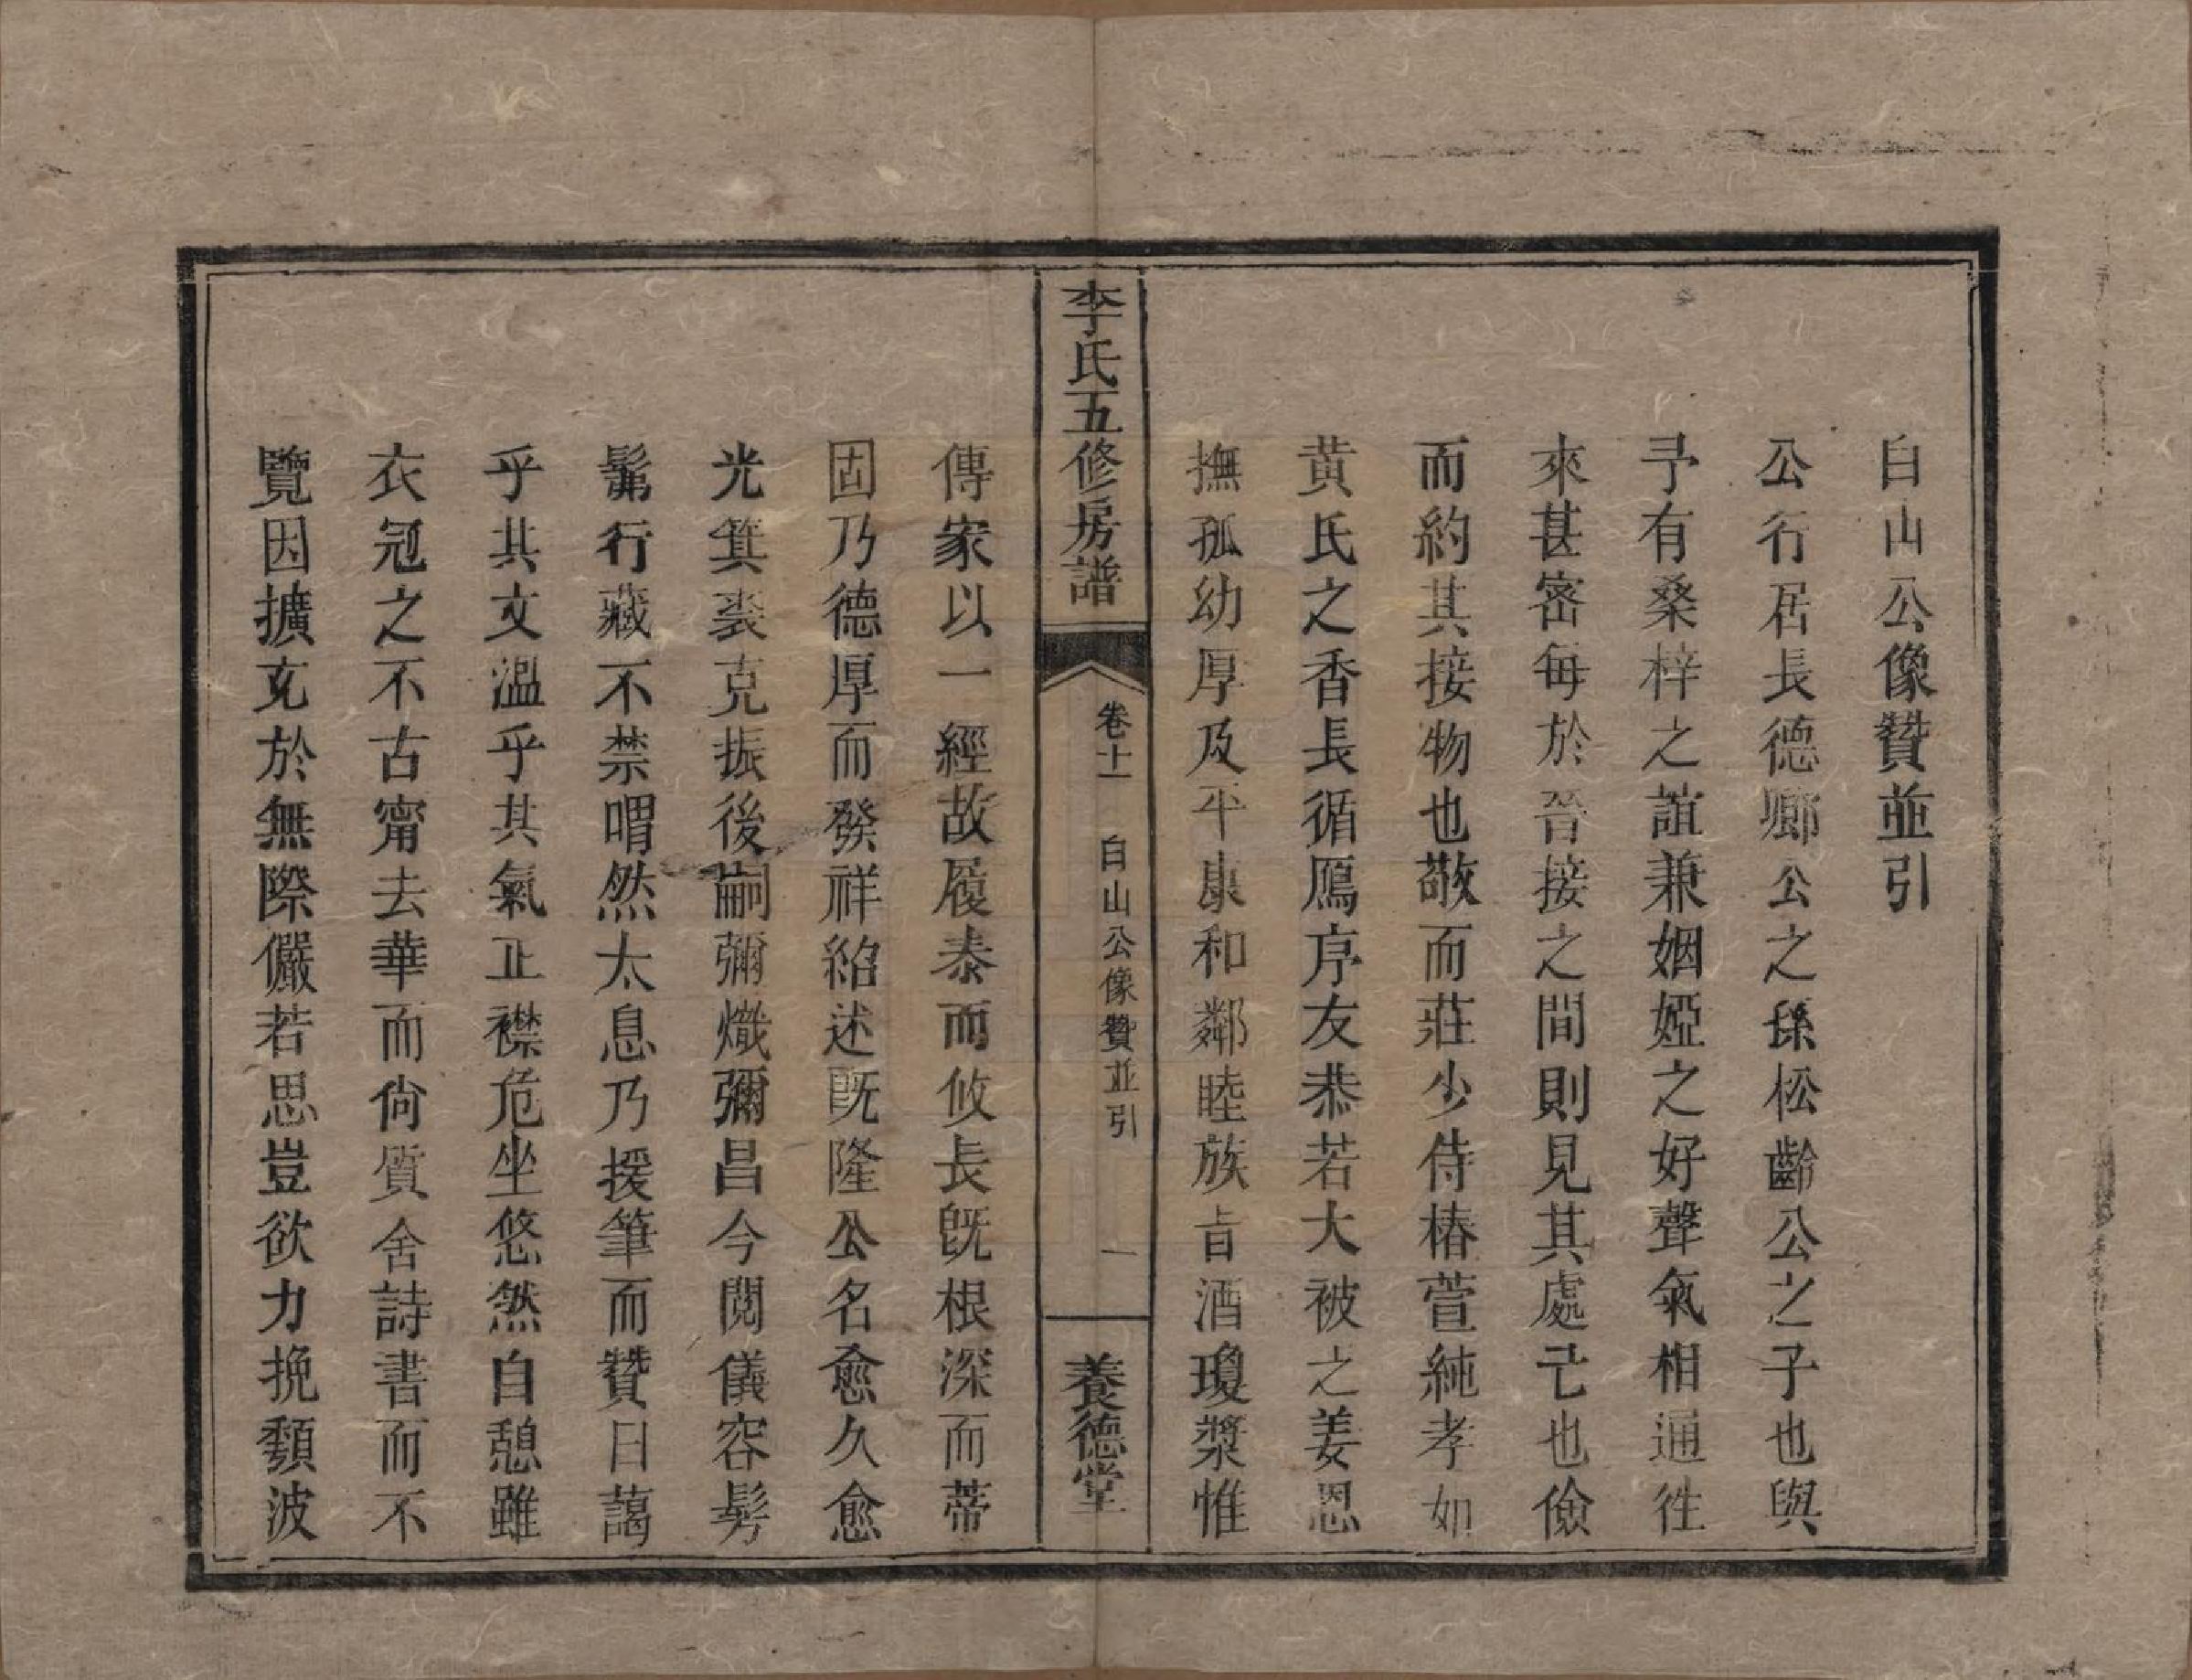 白山公像贊並引
公行居長德卿公之孫松齡公之子也與
予有桑梓之誼兼姻婭之好聲氣相通徃
來甚密每於晉接之間則見其處已也儉
而約其接物也敬而莊少侍椿萱純孝如
黄氏之香長循鴈序友恭若大被之姜恩
撫孤幼厚及平康和鄰睦族旨酒瓊漿惟
李氏五修房譜
卷十一
白山公像贊並引
一
養德堂
傳家以一經故履泰而攸長旣根深而蒂
固乃德厚而發祥紹述旣隆公名愈久愈
光箕裘克振後嗣彌熾彌昌今閱儀容髣
髴行藏不禁喟然太息乃援筆而贊曰藹
乎其文溫乎其氣正襟危坐悠然自憩雖
衣冠之不古甯去華而尙質舍詩書而不
覽因擴充於無際儼若思豈欲力挽頽波